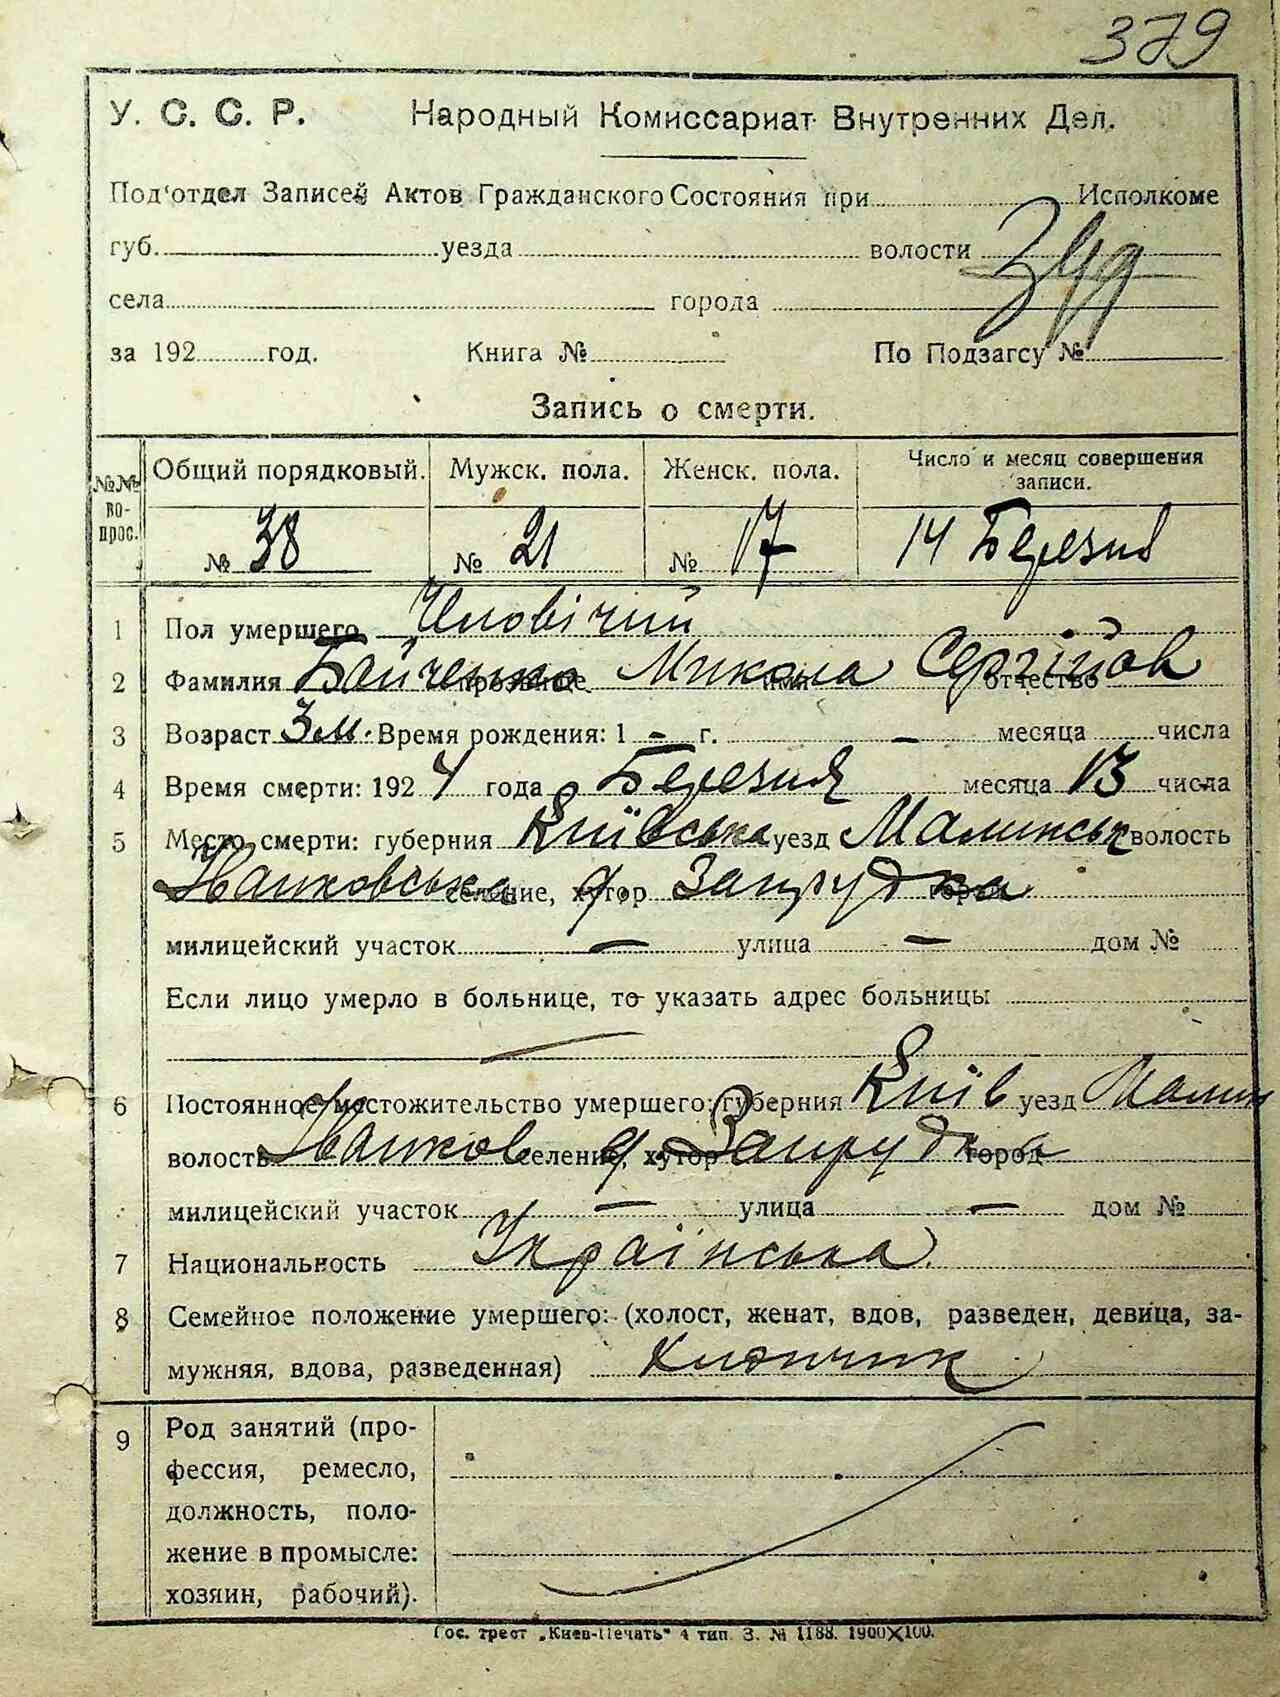 379
У. С. С. Р. Народный Комиссариат Внутренних Дел.
Под'отдел Записей Актов Гражданского Состояния при Исполкоме
губ. уезда волости
села города
за 192 год. Книга № По Подзагсу №
Запись о смерти.
№№ вопрос. Общий порядковый. Мужск. пола. Женск. пола. Число и месяц совершения записи.
№ 38 № 21 № 17 14 Березня
1 Пол умершего Чловічий
2 Фамилия Бойченко прозвище Микола имя Сергійов отчество
3 Возраст 3 м. Время рождения: 1 - г. - месяца числа
4 Время смерти: 1924 года Березня месяца 13 числа
5 Место смерти: губерния Київська уезд Малинськ волость
Іванковська селение, хутор д. Запрудка город
милицейский участок - улица - дом №
Если лицо умерло в больнице, то указать адрес больницы
6 Постоянное местожительство умершего: губерния Київ уезд Малин
волость Іванков селение, хутор д Запрудка город
милицейский участок - улица - дом №
7 Национальность Українська
8 Семейное положение умершего: (холост, женат, вдов, разведен, девица, за-
мужняя, вдова, разведенная)
9 Род занятий (про-
фессия, ремесло,
должность, поло-
жение в промысле:
хозяин, рабочий).
Гос. трест „Киев-Печать" 4 тип. З. № 1188. 1900X100.